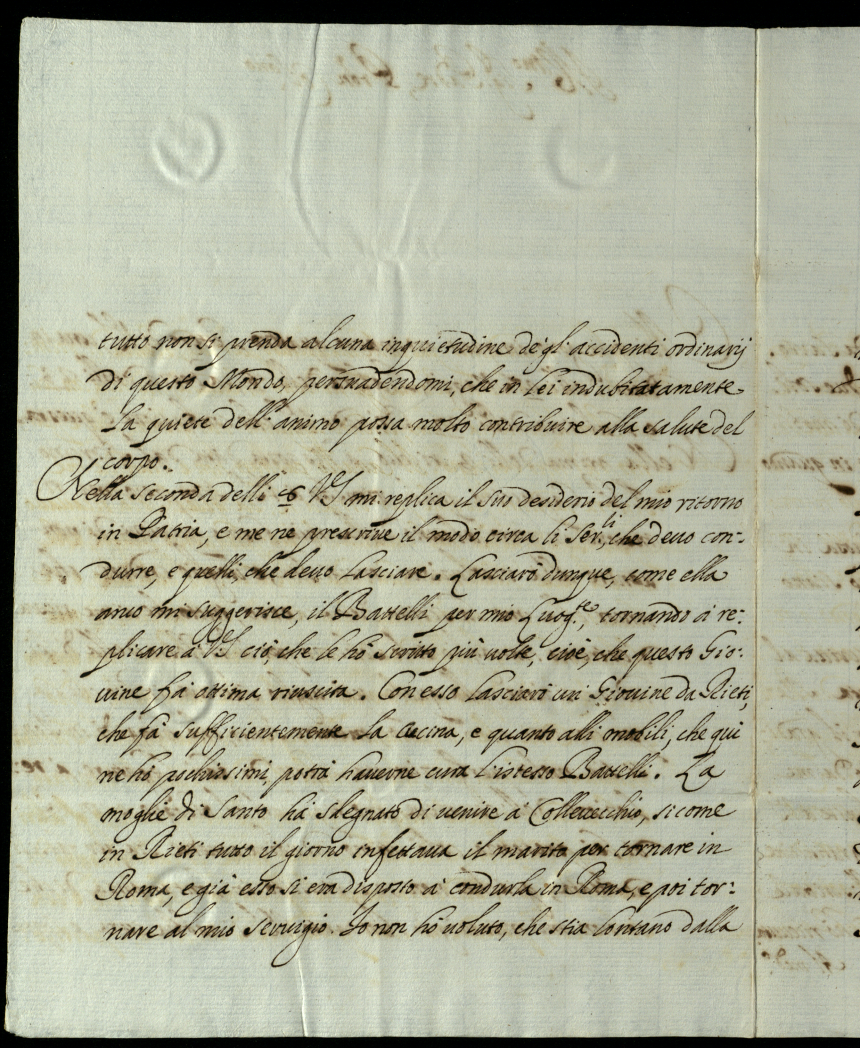 tutto non si prenda alcuna inquietudine degl'accidenti ordinarij
di questo Mondo, persuadendomi, che in Lei indubitatamente
la quiete dell'animo possa molto contribuire alla salute del
corpo.
Nella seconda delli 6 VS mi replica il suo desiderio del mio ritorno
in Patria, e me ne prescrive il modo circa li Ser.li, che devo con-
durre, e quelli, che devo lasciare. Lasciarò dunque, come ella
anco mi suggerisce, il Battelli per mio Luog.te, tornando à re-
plicare à VS ciò, che le hò scritto più volte, cioè, che questo Gio-
vine fà ottima riuscita. Con esso lasciarò un Giovine da Rieti,
che fà sufficientemente la cucina, e quanto alli mobili, che qui
ne hò pochissimi, potrà haverne cura l'istesso Battelli. La
moglie di Santo hà sdegnato di venire à Collevecchio, si come
in Rieti tutto il giorno infettava il marito per tornare in
Roma, e già esso si era disposto à condurla in Roma, e poi tor-
nare al mio servigio. Io non hò voluto, che stia lontano dalla